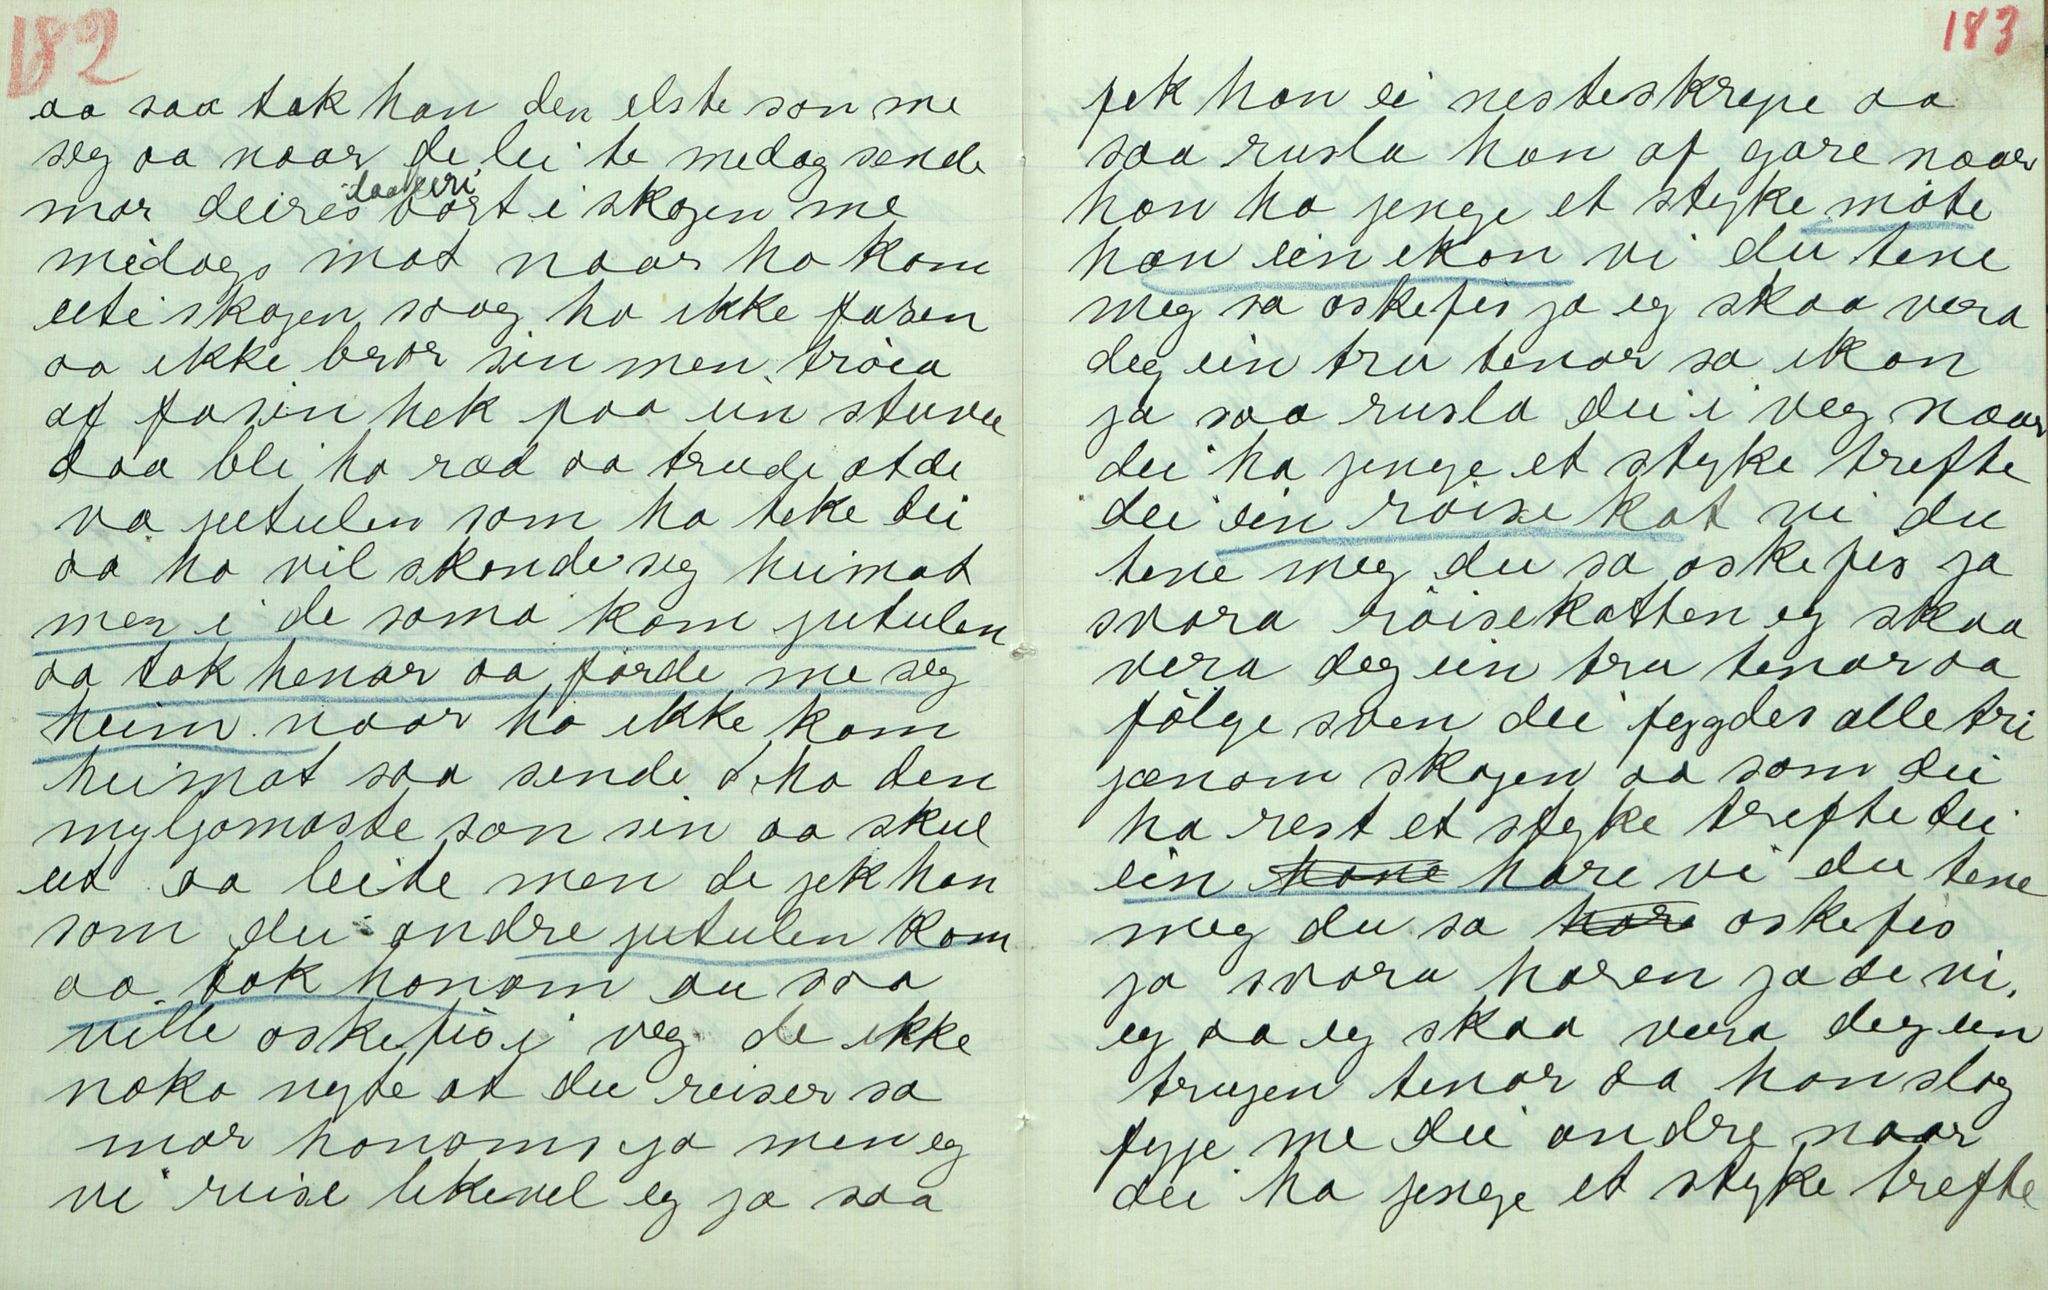 182
aa saa tok han den elste son me
seg aa naar de lei te medag sende
mor deires daateri bort i skogen me
midags mat naar ho kom
uti skogen saag ho ikke fasen
aa ikke bror sin men tröia
af fasin hek paa ein stuvu
daa bli ho ræd aa trude at de
va jutulen som ha teke dei
aa ho vil skonde seg heimat
men i de sama kom jutulen
aa tok henar aa förde me seg
heim naar ho ikke kom
heimat saa sende ho den
myljomaste son sin aa skul
ut aa leite men de jek han
som dei andre jutulen kom
aa tok honom au saa
ville oskefis i veg de ikke
noko nyte at du reiser sa
mor honoms ja men eg
vi reise likevel eg ja saa
183
fek han ei nesteskrepe aa
saa rusla han af gare naar
han ha jenge et styke möte
han ein ikon vi du tene
meg sa oskefis ja eg skaa vera
deg ein tru tenar sa ikon
ja saa rusla dei i veg naar
dei ha jenge et styke trefte
dei ein röise kat vi du
tene meg du sa oskefis ja
svora röisekatten eg skaa
vera deg ein tru tenar aa
fölge sven dei fygdes alle tri
jænom skogen aa som dei
ha rest et styke trefte dei
ein hare vi du tene
meg du sa oskefis
ja svora haren ja de vi
eg aa eg skaa vera deg ein
trugen tenar aa han slog
fyje me dei andre naar
dei ha jenge et styke trefte